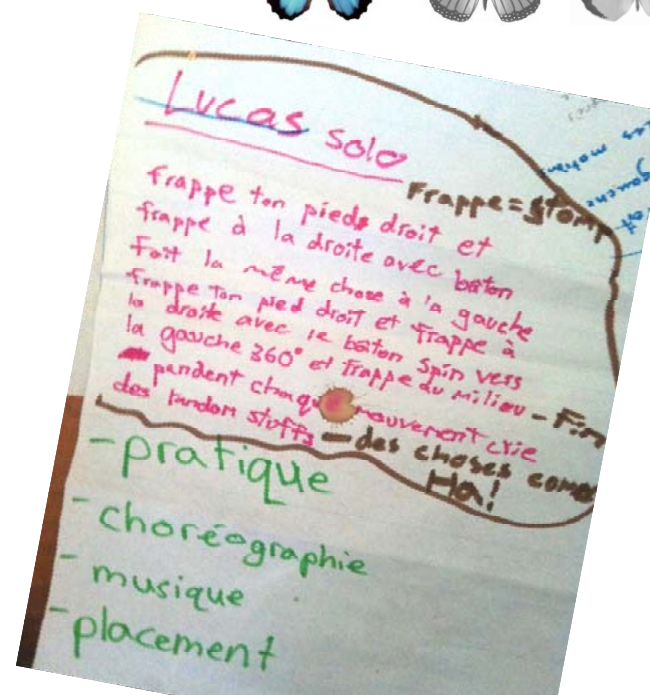 Lucas solo
Frappe = stomp
frappe ton pieds droit et
frappe à la droite avec bâton
fait la même chose à la gauche
frappe ton pied droit et frappe à
la droite avec le bâton spin vers
la gauche 360° et frappe du milieu - Fin
pendent chaque mouvement crie
des random stuffs - des choses come
Ha!
- pratique
- choréographie
- musique
- placement